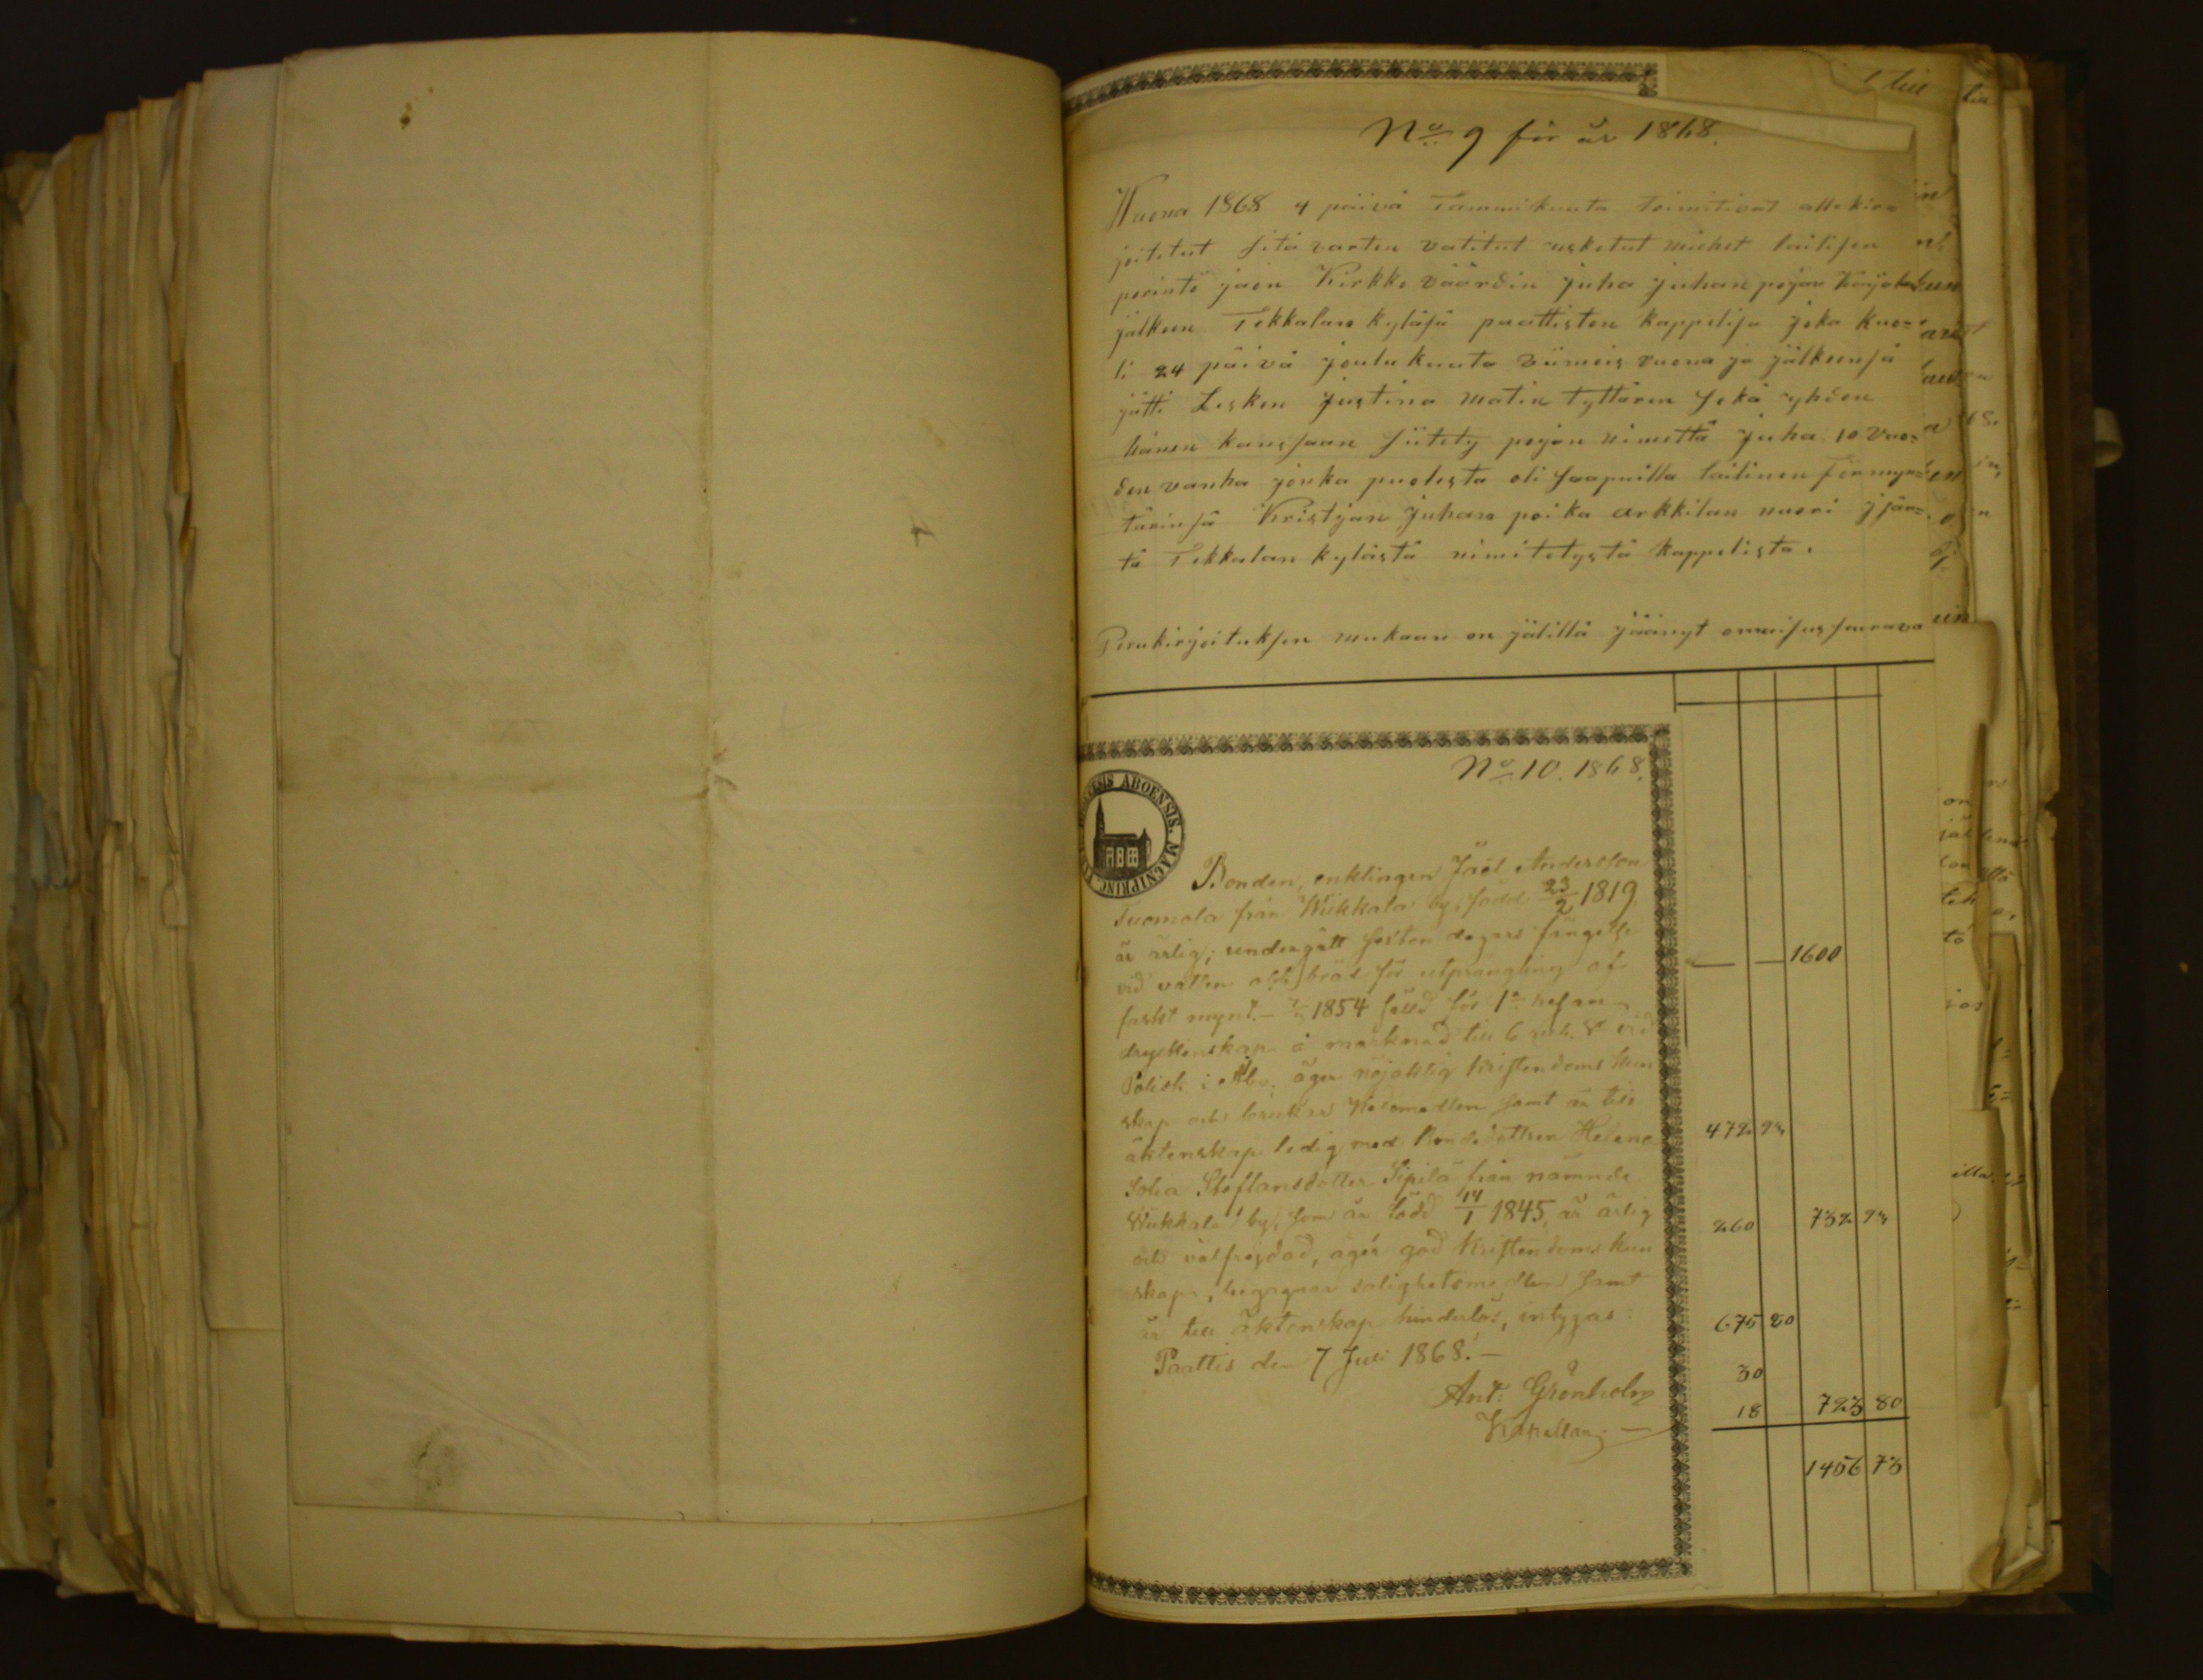 No 9 för år 1868.
Wuona 1868 4 päivä Tammikuuta toimitivat allekir=
joitetut sitä varten vatitut uskotut miehet lailisen
perintö jaon Kirkko väärdin Juha Juhan pojan
jälkeen Tekkalan kyläsä paattisten kappelisa joka kuo=
li 24 päivä joulukuuta viimeis vuona ja jälkeensä
jätti Lesken Justina Matin tyttären sekä yhden
hänen kanssaan siitety pojan nimettä Juha 10 vuo=
den vanha jonka puolesta oli saapuilla lailinen förmyn=
tärinsä Kristjan Juhan poika arkkilan nuori
tä Tekkalan kylästä nimitetystä kappelista.
Perukirjoituksen mukaan on jälillä jäänyt omaisus seurava
No 10. 1868.
DIOECESIS ABOENSIS. MAGNI PRINC.
Bonden, enklingen Joel Andersson
Tuomola från Wiikkala by, född 23/2 1819,
är ärlig; undergått dagars fängelse
vid vatten och bröd för utprångling af
falskt mynt.- 1854 fälld för 1a resan
dryckenskap å marknad till 6 rub. Sr vid
Polisk i Åbo. äger nöjaktig kristendoms kun
skap och brukar Nådemedlen samt är till
äktenskap ledig med Bondedottren Helena
Sofia Steffansdotter Sipilä från nämnde
Wiikkala by, som är född 14/1 1845, är ärlig
och välfrejdad, äger god Kristendoms kun
skap, begagnar salighetsmedlen samt
är till äktenskap hinderlös, intygas:
Paattis den 7 Juli 1868.-
Ant: Grönholm
Kapellan.
1600
472 93
260 732 93
675 80
30
18 723 80
1456 73